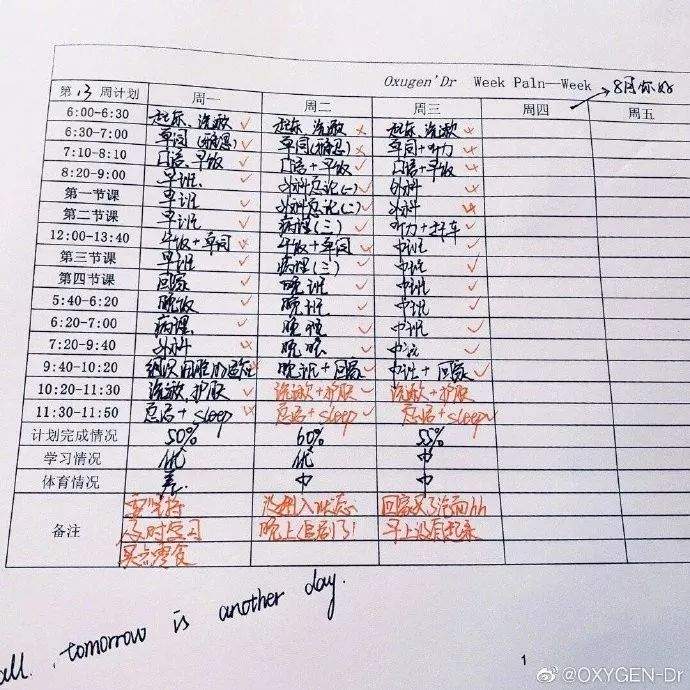 Oxugen'Dr Week Paln—Week 8月你好
第13周计划 周一 周二 周三 周四 周五
6:00-6:30 起床、洗漱 起床、洗漱 起床、洗漱
6:30-7:00 单词(雅思) 单词(雅思) 单词+听力
7:10-8:10 口语、早饭 口语+早饭 口语+早饭
8:20-9:00 早班 外科总论(一) 外科
第一节课 早班 外科总论(二) 外科
第二节课 早班 病理(三) 听力+
12:00-13:40 午饭+单词 午饭+单词 中班
第三节课 早班 病理(三) 中班
第四节课 回家 晚班 中班
5:40-6:20 晚饭 晚班 中班
6:20-7:00 病理 晚班 中班
7:20-9:40 外科 晚班 中班
9:40-10:20 晚班+回家 中班+回家
10:20-11:30 洗漱、护肤 洗漱+护肤 洗漱+护肤
11:30-11:50 总结+sleep 总结+sleep 总结+sleep
计划完成情况 50% 60% 55%
学习情况 优 优 中
体育情况 差 中 中
备注 要坚持 没进入状态 hh
及时复习 晚上 早上没有起来
买点零食
all. tomorrow is another day.
1
@OXYGEN-Dr